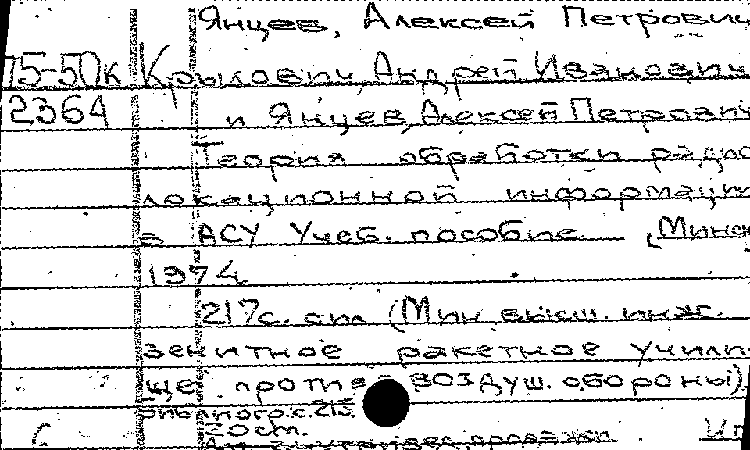 Янцев, Алексей Петрович
75-50к Крылович, Андрей Иванович
2364 и Янцев, Алексей Петрович
Теория обработки радио
локационной информации
в АСУ Учеб. пособие. [Минск
1974
217с. ил (Мин высш. инж.
зенитное ракетное учили-
ще против возДуш. обороны)
Библиогр. с. 215.
20см.